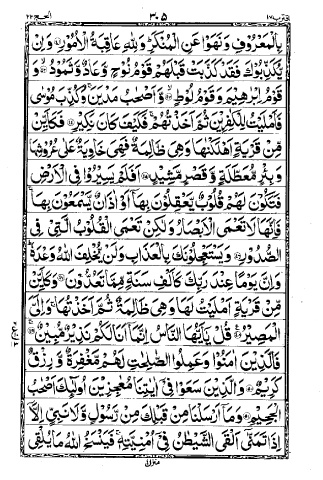 اقترب ١٧ ٣٠٥ الحج ٢٢
بِالْمَعْرُوفِ وَنَهَوْا عَنِ الْمُنْكَرِ وَلِلّٰهِ عَاقِبَةُ الْأُمُورِ وَإِنْ
يُكَذِّبُوكَ فَقَدْ كَذَّبَتْ قَبْلَهُمْ قَوْمُ نُوحٍ وَعَادٌ وَثَمُودُ وَ
قَوْمُ إِبْرٰهِيمَ وَقَوْمُ لُوطٍ وَأَصْحٰبُ مَدْيَنَ وَكُذِّبَ مُوسٰى
فَأَمْلَيْتُ لِلْكٰفِرِينَ ثُمَّ أَخَذْتُهُمْ فَكَيْفَ كَانَ نَكِيرِ فَكَأَيِّنْ
مِنْ قَرْيَةٍ أَهْلَكْنٰهَا وَهِيَ ظَالِمَةٌ فَهِيَ خَاوِيَةٌ عَلٰى عُرُوشِهَا
وَبِئْرٍ مُعَطَّلَةٍ وَقَصْرٍ مَشِيدٍ أَفَلَمْ يَسِيرُوا فِي الْأَرْضِ
فَتَكُونَ لَهُمْ قُلُوبٌ يَعْقِلُونَ بِهَا أَوْ اٰذَانٌ يَسْمَعُونَ بِهَا
فَإِنَّهَا لَا تَعْمَى الْأَبْصَارُ وَلٰكِنْ تَعْمَى الْقُلُوبُ الَّتِي فِي
الصُّدُورِ وَيَسْتَعْجِلُونَكَ بِالْعَذَابِ وَلَنْ يُخْلِفَ اللّٰهُ وَعْدَهُ
وَإِنَّ يَوْمًا عِنْدَ رَبِّكَ كَأَلْفِ سَنَةٍ مِمَّا تَعُدُّونَ وَكَأَيِّنْ
مِنْ قَرْيَةٍ أَمْلَيْتُ لَهَا وَهِيَ ظَالِمَةٌ ثُمَّ أَخَذْتُهَا وَإِلَيَّ
الْمَصِيرُ قُلْ يٰأَيُّهَا النَّاسُ إِنَّمَا أَنَا لَكُمْ نَذِيرٌ مُبِينٌ
فَالَّذِينَ اٰمَنُوا وَعَمِلُوا الصّٰلِحٰتِ لَهُمْ مَغْفِرَةٌ وَرِزْقٌ
كَرِيمٌ وَالَّذِينَ سَعَوْا فِي اٰيٰتِنَا مُعٰجِزِينَ أُولٰئِكَ أَصْحٰبُ
الْجَحِيمِ وَمَا أَرْسَلْنَا مِنْ قَبْلِكَ مِنْ رَسُولٍ وَلَا نَبِيٍّ إِلَّا
إِذَا تَمَنّٰى أَلْقَى الشَّيْطٰنُ فِي أُمْنِيَّتِهِ فَيَنْسَخُ اللّٰهُ مَا يُلْقِي